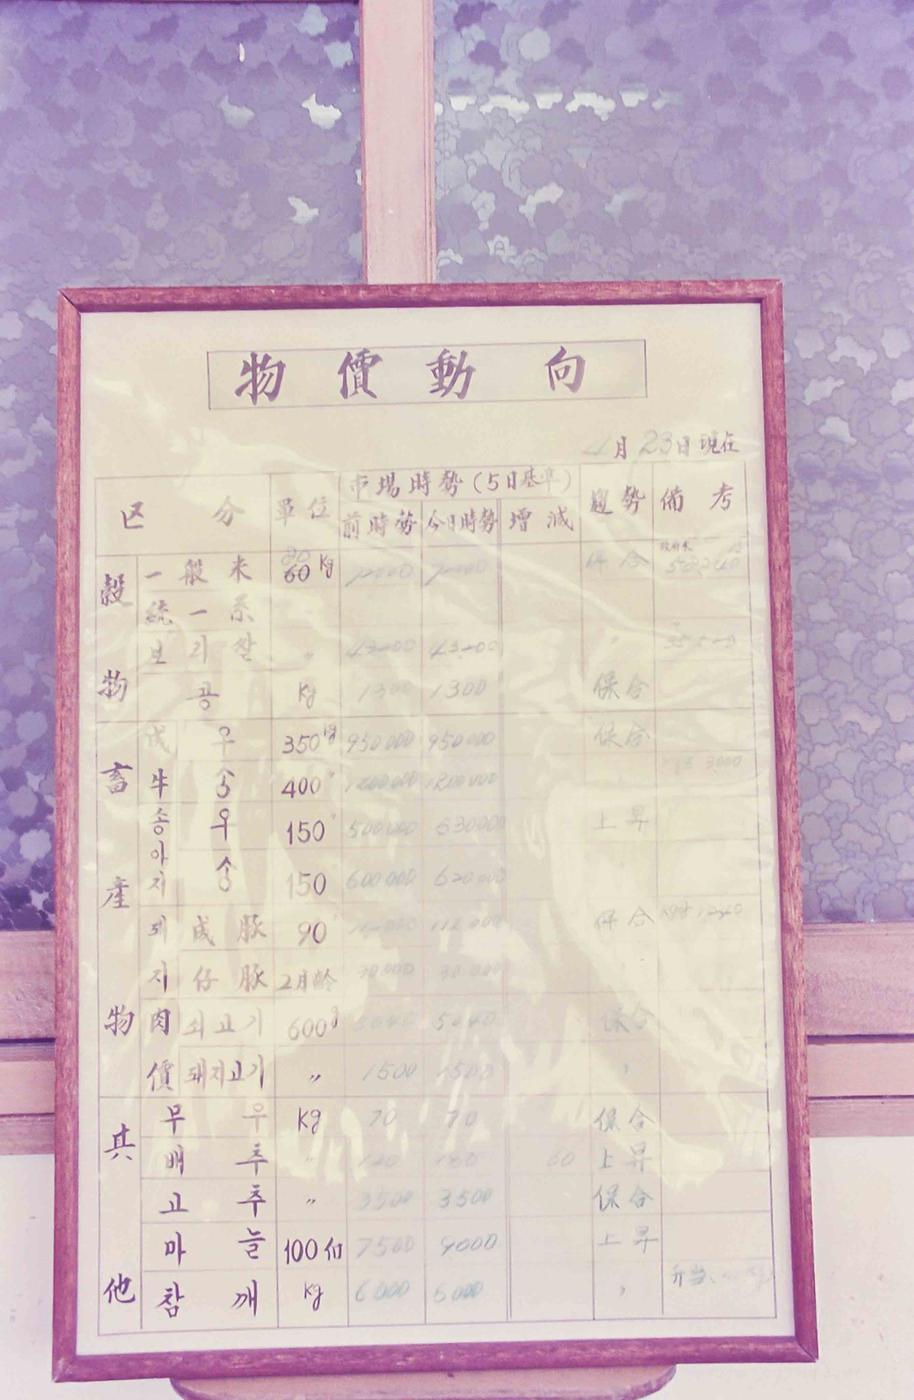 物 價 動 向
4月 23日 現在
区 分 單位 市場時勢(5日基準) 趨勢 備考
前時勢 今日時勢 增減
穀物
一般米 60Kg 保合
統一系
보리쌀 〃 43000 43000 〃
콩 Kg 1300 1300 保合
畜産物
成牛 우 350kg 950000 950000 保合
숭 400〃
송아지 우 150〃 500000 630000 上昇
숭 150 600000 620000
돼지 成豚 90 112000 保合
仔豚 2月齡 30000 30000
肉價 쇠고기 600g 5040 5040 保合
돼지고기 〃 1500 1500 〃
共他
무우 Kg 70 70 保合
배추 〃 120 180 60 上昇
고추 〃 3500 3500 保合
마늘 100介 7500 9000 上昇
참깨 kg 6000 6000 〃